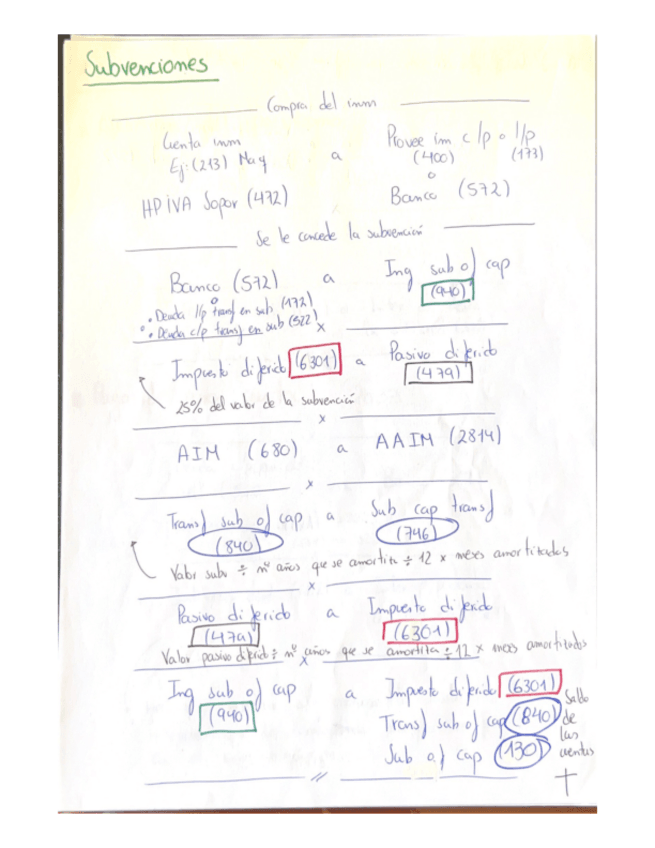 Subvenciones
Compra del inm
Cuenta inm a Provee im c/p o l/p
Ej: (213) Maq (400) (173)
o
HP IVA Sopor (472) Banco (572)
Se le concede la subvención
Banco (572) a Ing sub of cap
o (940)
• Deuda l/p transf en sub (172)
• Deuda c/p transf en sub (522)
x
Impuesto diferido (6301) a Pasivo diferido
(479)
25% del valor de la subvención
x
AIM (680) a AAIM (2814)
x
Transf sub of cap a Sub cap transf
(840) (746)
Valor subv ÷ nº años que se amortiza ÷ 12 x meses amortizados
x
Pasivo diferido a Impuesto diferido
(479) (6301)
Valor pasivo diferido ÷ nº años que se amortiza ÷ 12 x meses amortizados
x
Ing sub of cap a Impuesto diferido (6301)
(940) Transf sub of cap (840)
Sub of cap (130)
Saldo
de
las
cuentas